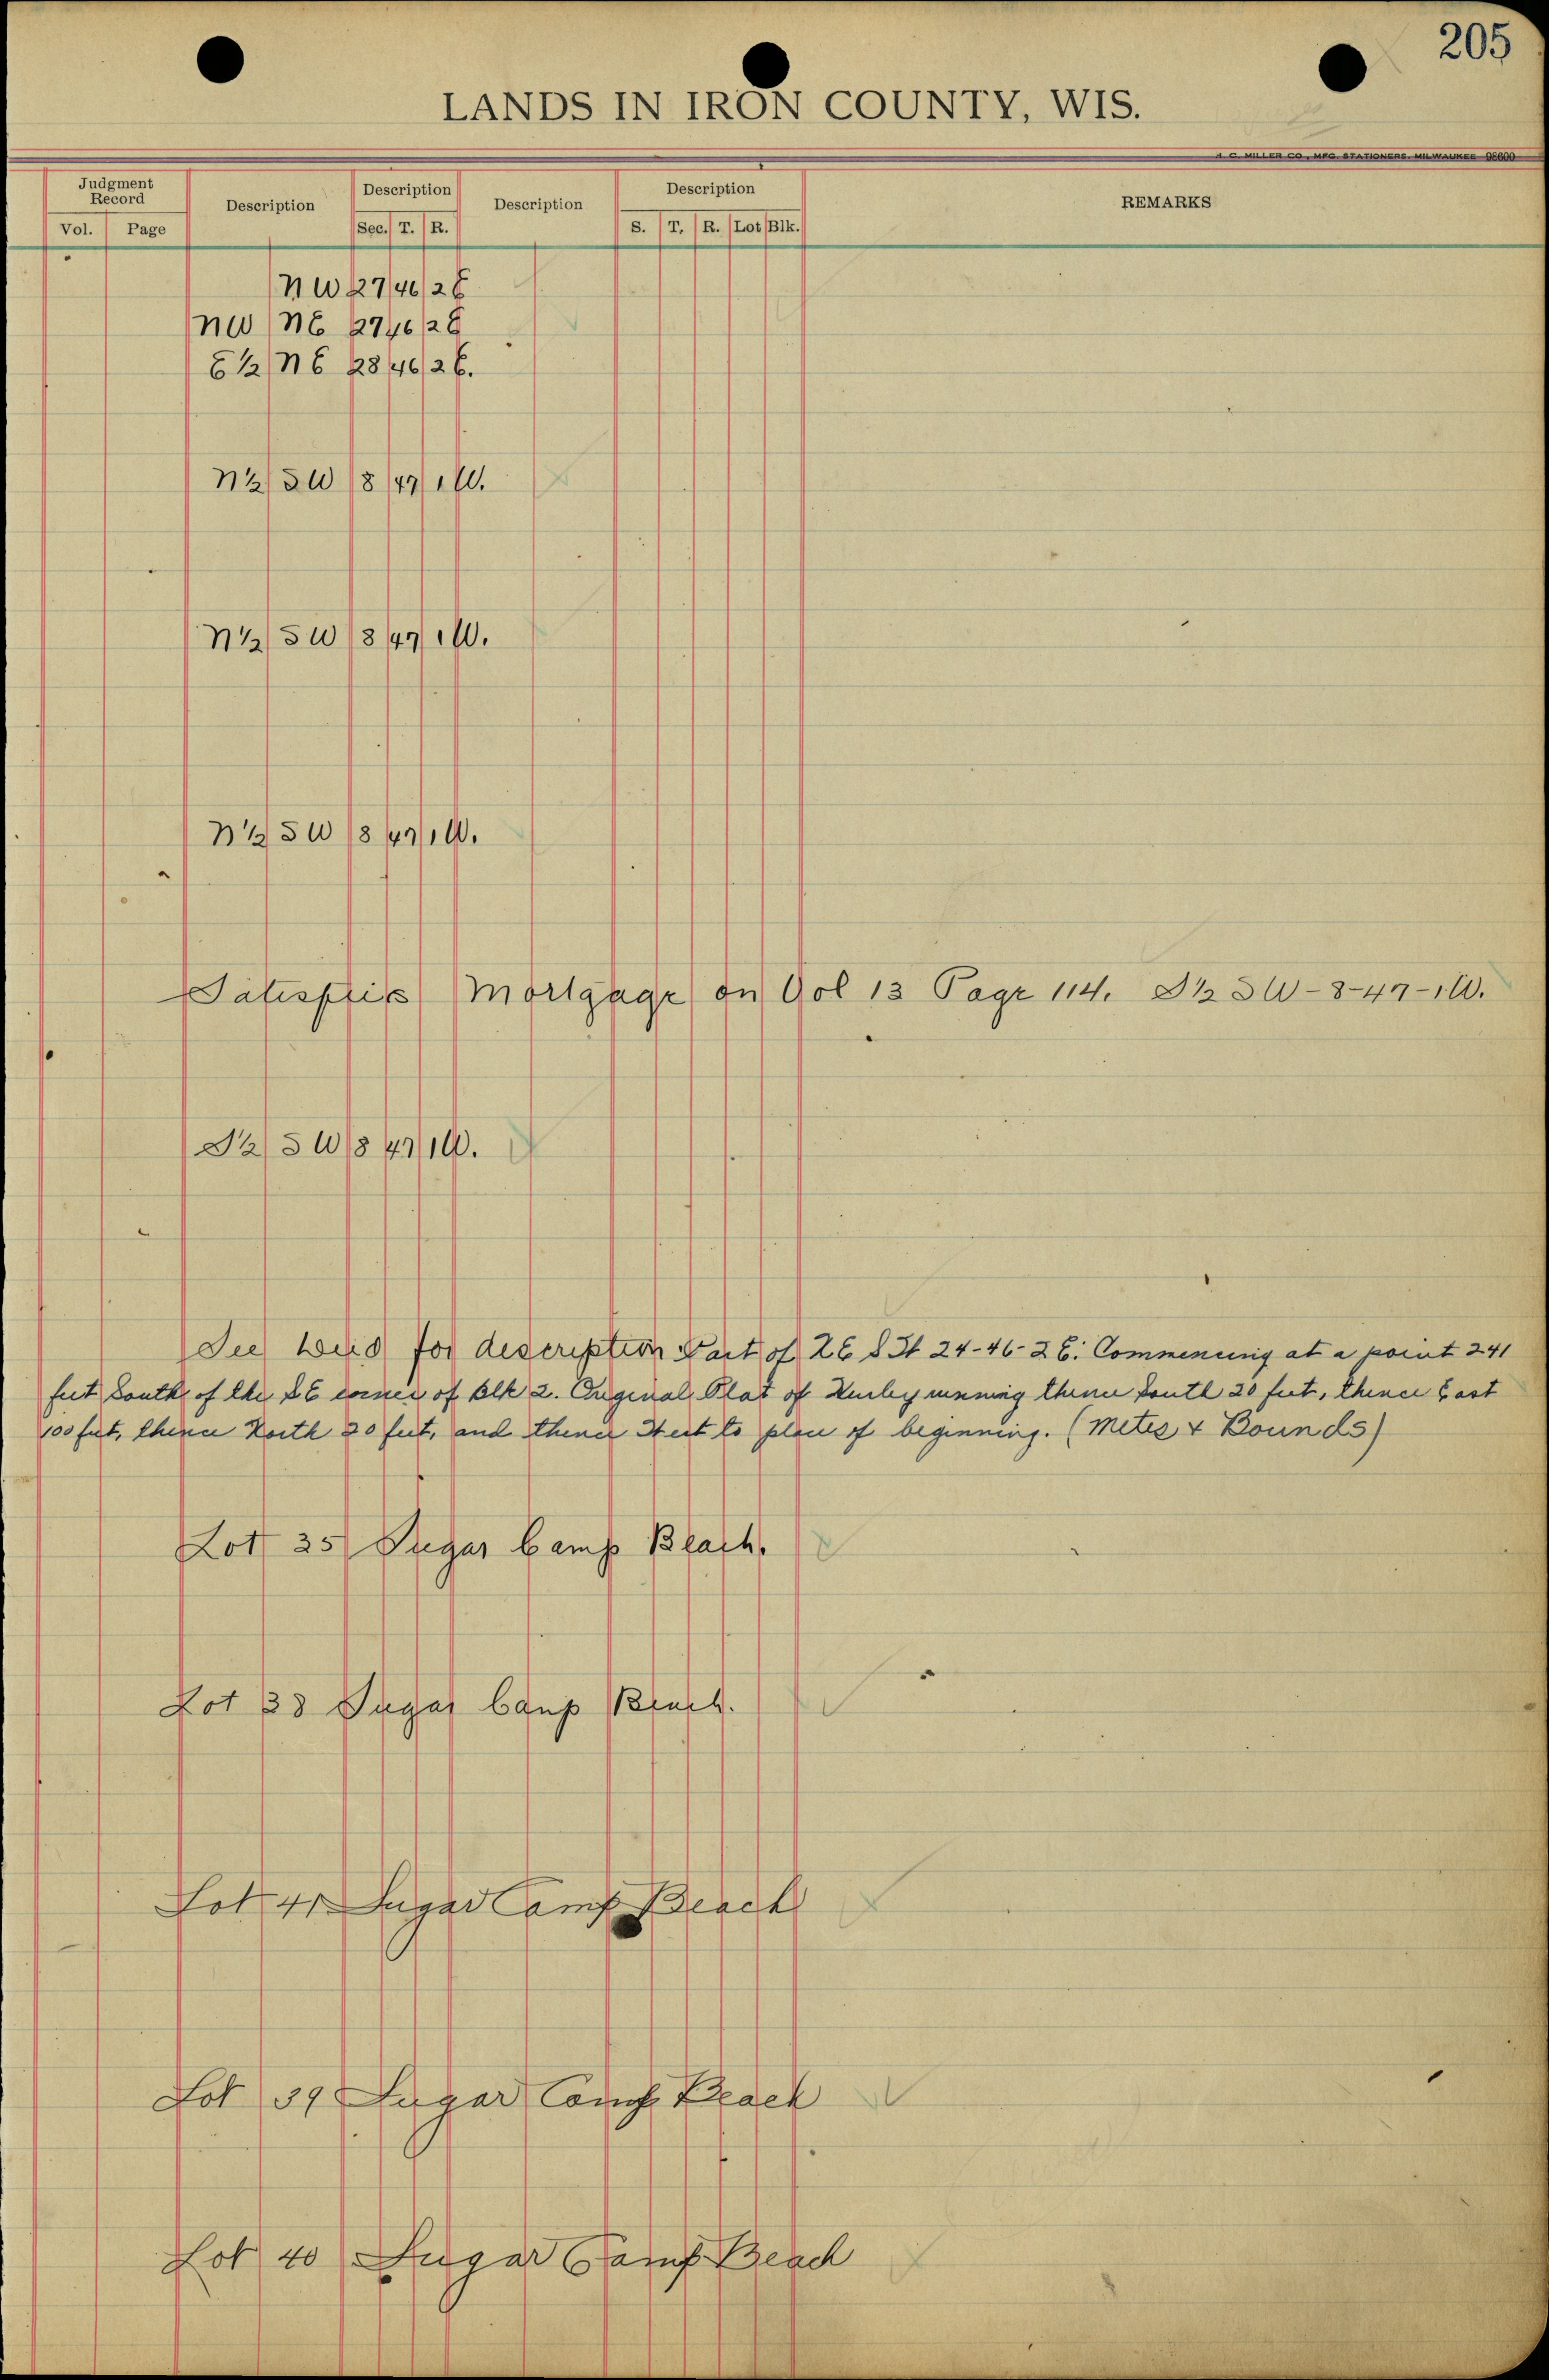 205
LANDS IN IRON COUNTY, WIS.
H. C. MILLER CO., MFG. STATIONERS, MILWAUKEE 98600
Judgment Record Description Description Description Description REMARKS
Vol. Page Sec. T. R. S. T. R. Lot Blk.
NW 27 46 2E
NW NE 27 46 2E
E½ NE 28 46 2E.
N½ SW 8 47 1W.
N½ SW 8 47 1W.
N½ SW 8 47 1W.
Satisfies Mortgage on Vol 13 Page 114. S½ SW-8-47-1W.
S½ SW 8 47 1W.
See Deed for description Part of 24-46-2E: Commencing at a point 241
feet South of the SE corner of Blk 2. Original Plat of Hurley running thence South 20 feet, thence East
100 feet, thence North 20 feet, and thence West to place of beginning. (Metes & Bounds)
Lot 35 Sugar Camp Beach.
Lot 38 Sugar Camp Beach.
Lot 41 Sugar Camp Beach
Lot 39 Sugar Camp Beach
Lot 40 Sugar Camp Beach